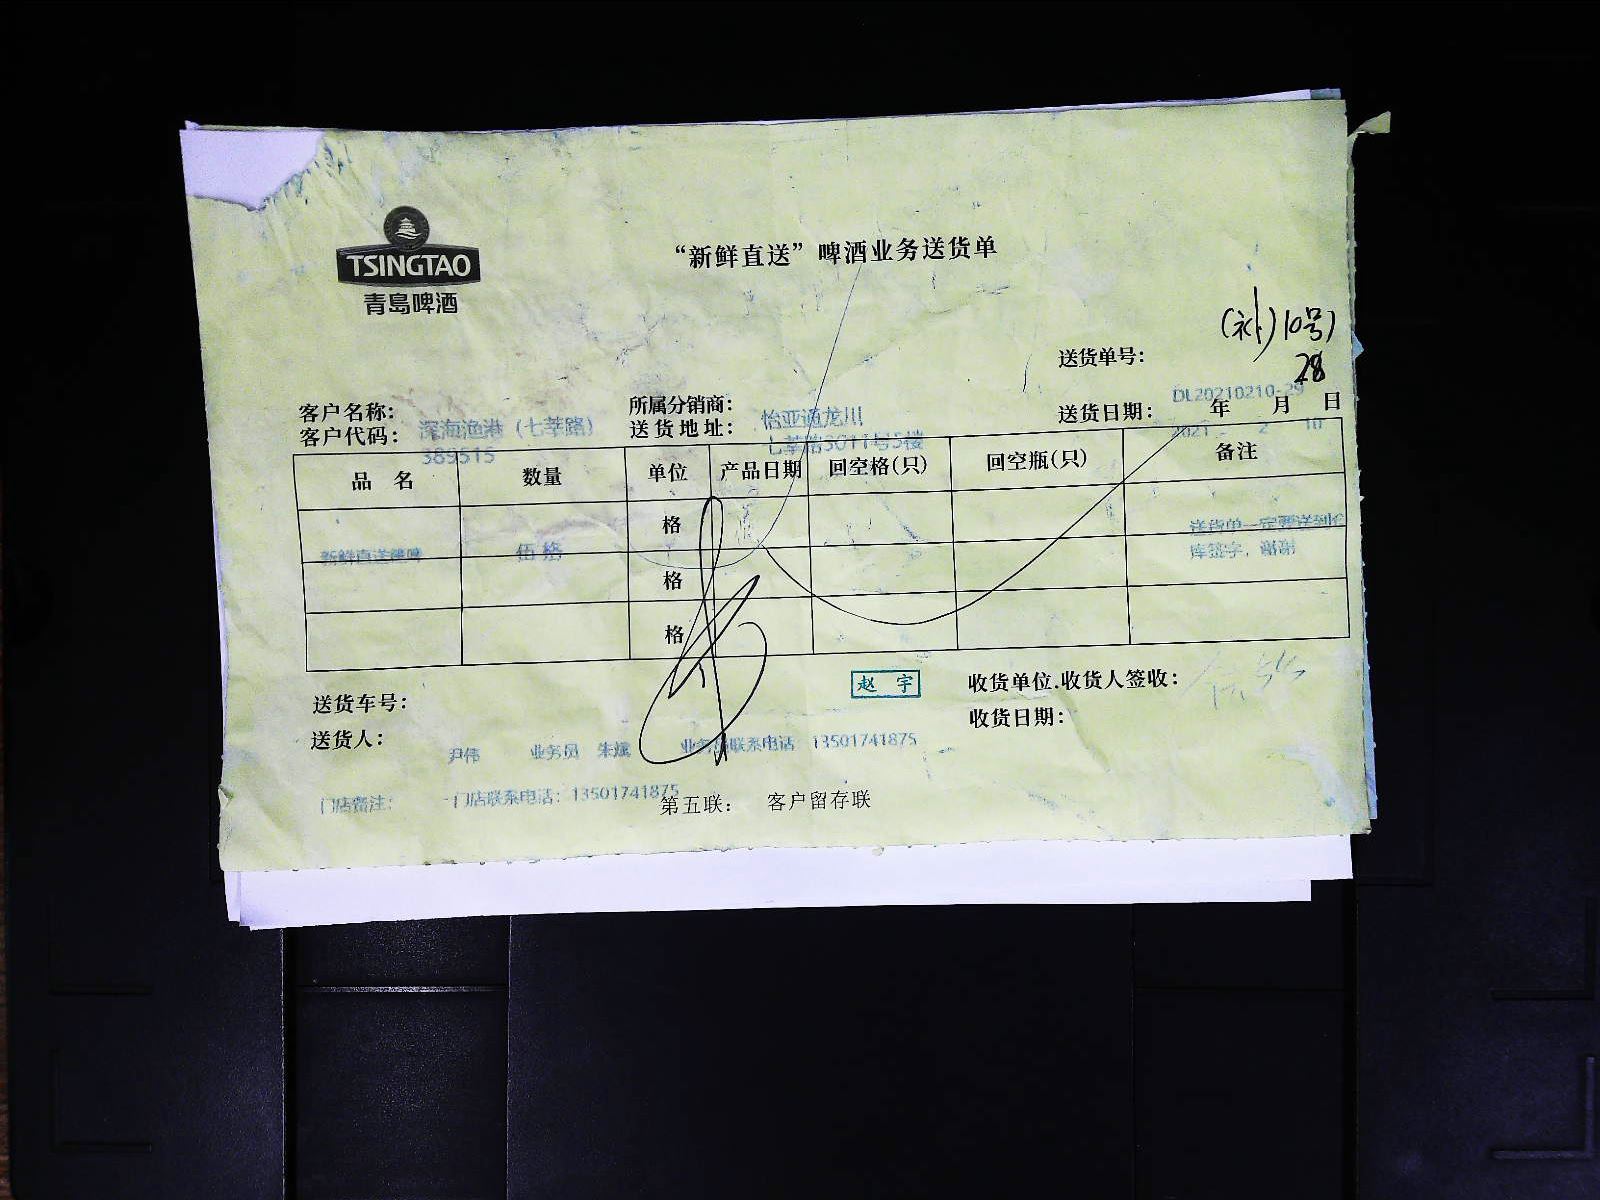 TSINGTAO
青島啤酒
“新鲜直送”啤酒业务送货单
(补)10号
28
送货单号：
DL20210210-29
客户名称：
深海渔港（七莘路）
所属分销商：
怡亚通龙川
送货日期： 年 月 日
2021 2 10
客户代码：
389515
送货地址：
七莘路3011号5楼
品 名 数量 单位 产品日期 回空格(只) 回空瓶(只) 备注
格
送货单一定要送到仓
新鲜直送 伍格 格
库签字，谢谢
格
送货车号：
赵 宇
收货单位.收货人签收：
收货日期：
送货人：
尹伟 业务员 业务员联系电话 13501741875
门店备注： 门店联系电话：13501741875
第五联： 客户留存联